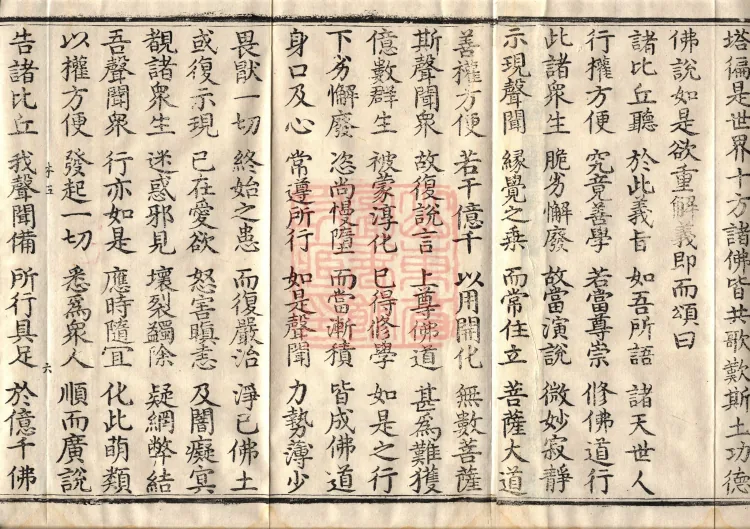 塔徧是世界十方諸佛皆共歌歎斯土功德
佛說如是欲重解義即而頌曰
諸比丘聽 於此義旨 如吾所語 諸天世人
行權方便 究竟善學 若當尊崇 修佛道行
此諸衆生 脆劣懈廢 故當演說 微妙寂靜
示現聲聞 緣覺之乘 而常住立 菩薩大道
善權方便 若干億千 以用開化 無數菩薩
斯聲聞衆 故復說言 上尊佛道 甚爲難獲
億數群生 被蒙淳化 已得修學 如是之行
下劣懈廢 恣尚慢墮 而當漸積 皆成佛道
身口及心 常遵所行 如是聲聞 力勢薄少
畏猒一切 終始之患 而復嚴治 淨已佛土
或復示現 已在愛欲 怒害瞋恚 及闇癡冥
覩諸衆生 迷惑邪見 壞裂蠲除 疑網弊結
吾聲聞衆 行亦如是 應時隨宜 化此萌類
以權方便 發起一切 悉爲衆人 順而廣說
五 六
告諸比丘 我聲聞備 所行具足 於億千佛